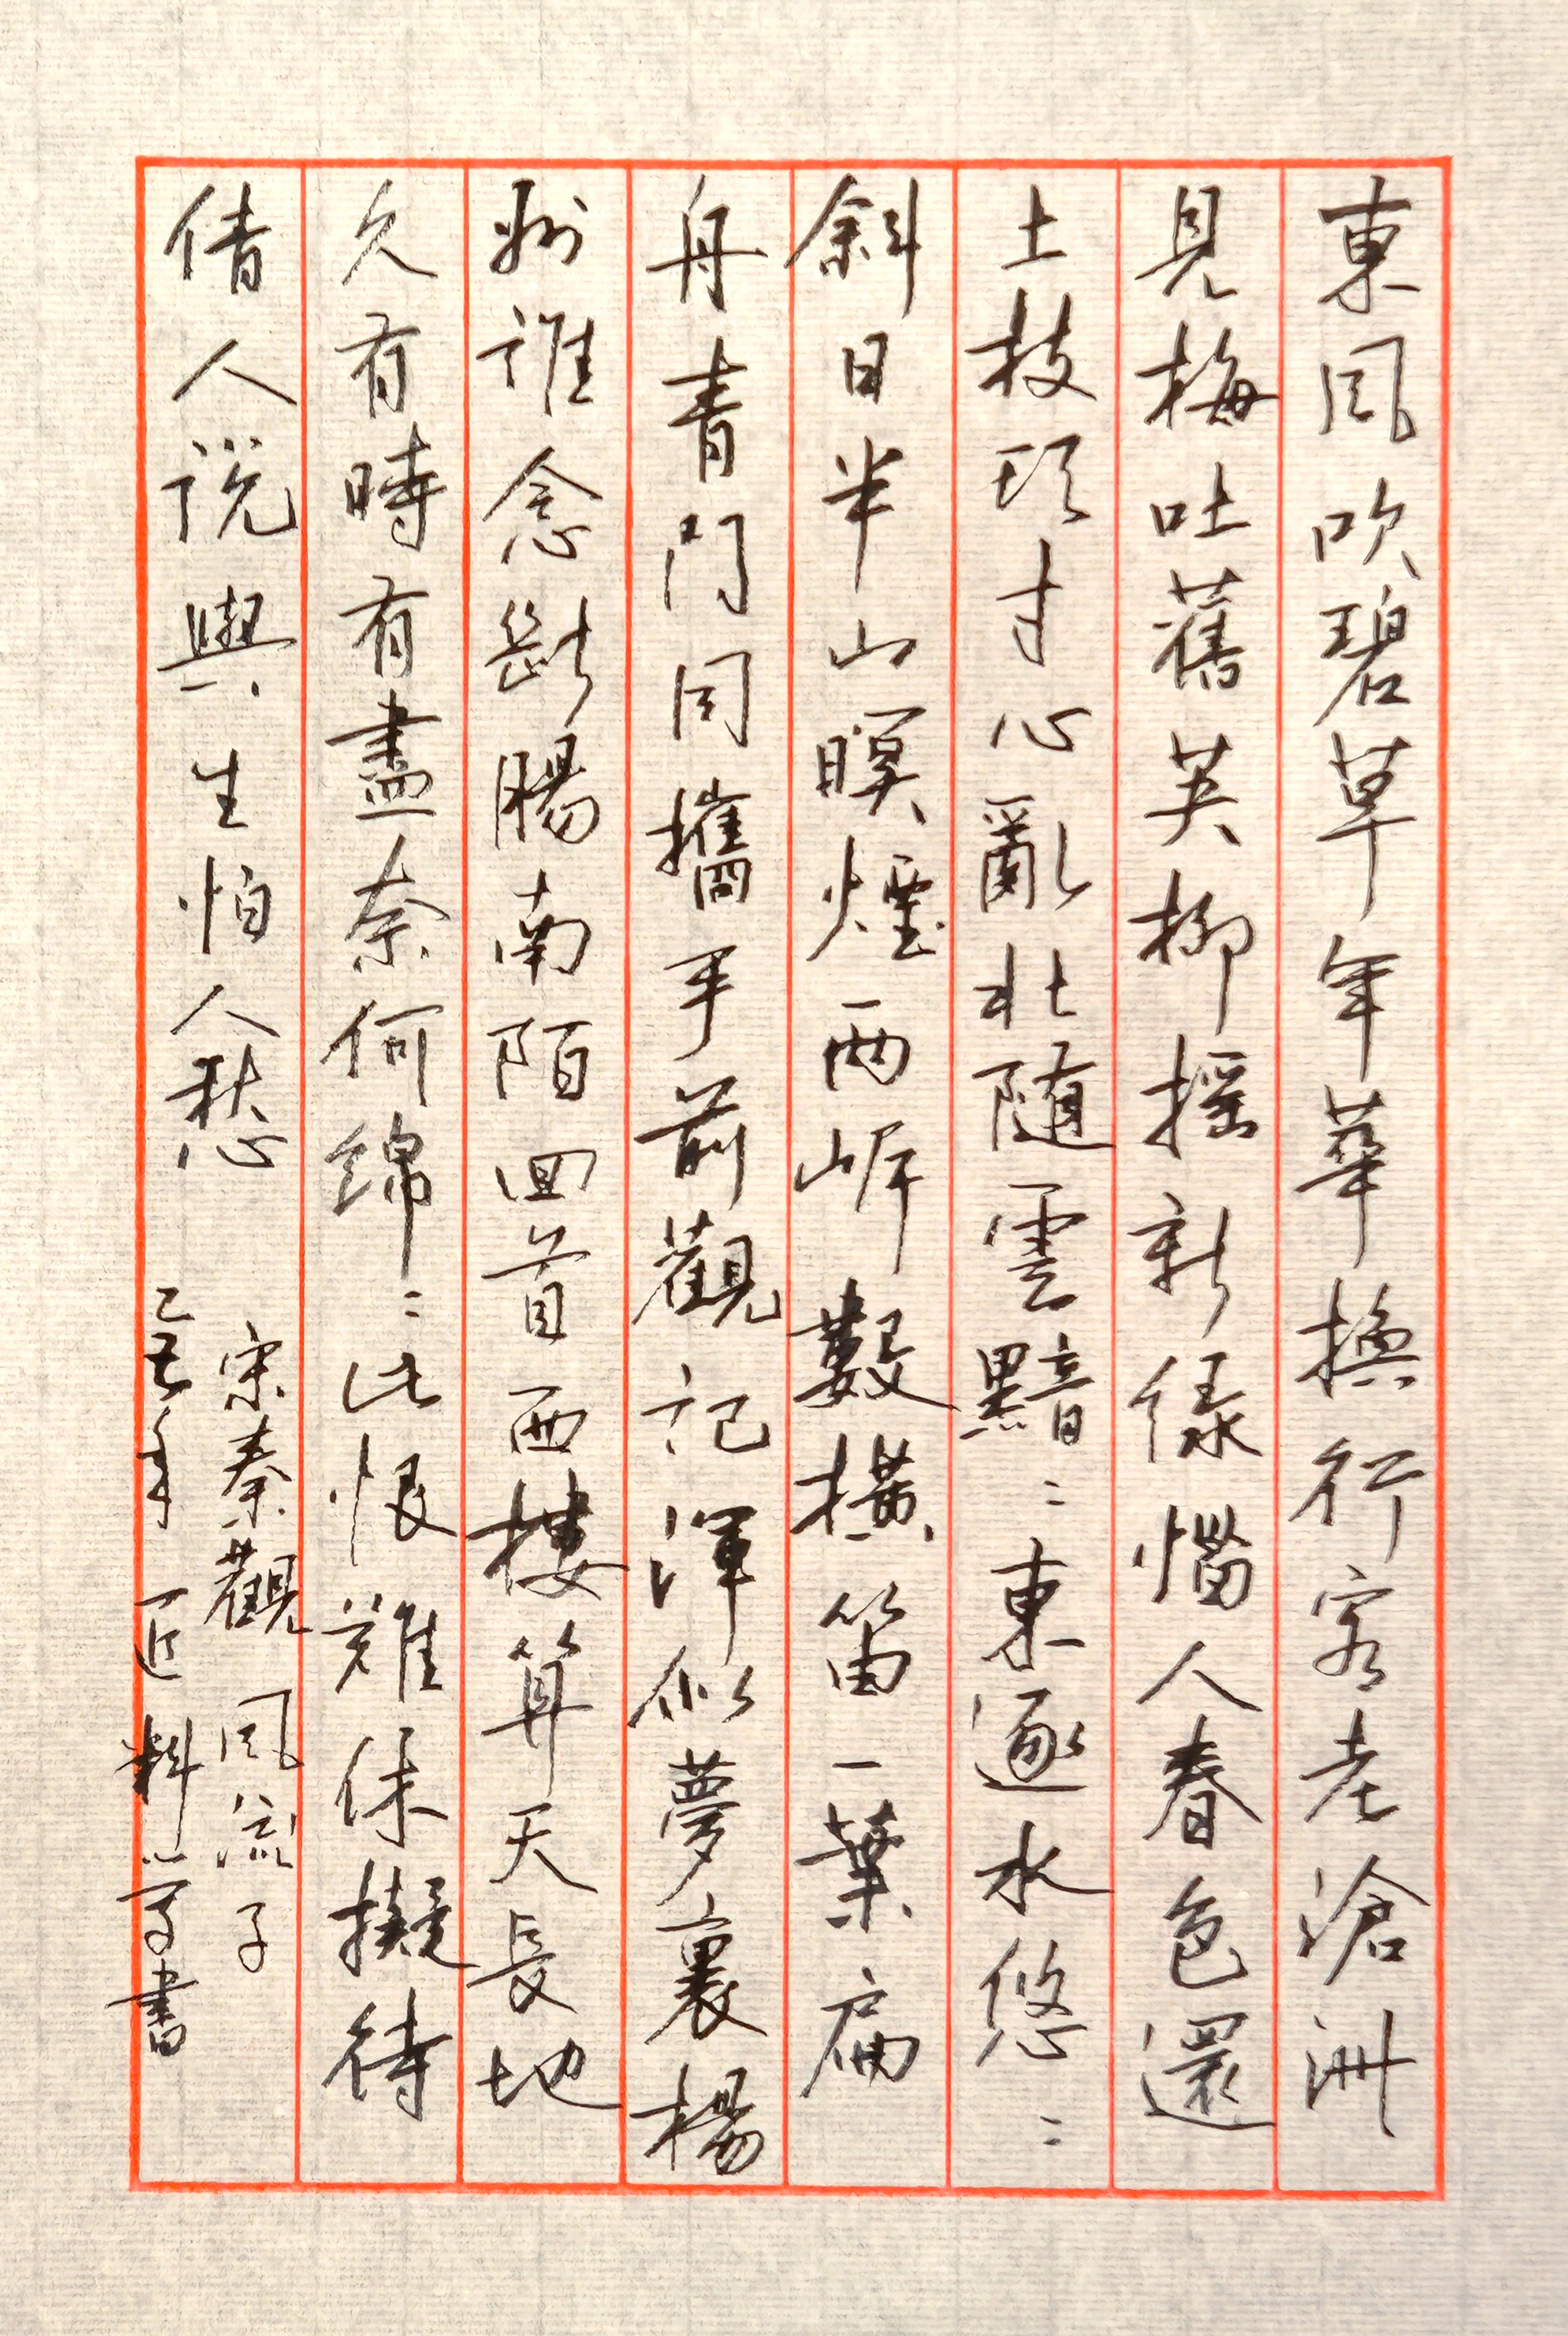 東風吹碧草年華換行客老滄洲
見梅吐舊英柳搖新綠惱人春色還
上枝頭寸心亂北隨雲黯〻東逐水悠〻
斜日半山暝煙兩岸數橫笛一葉扁
舟青門同攜手前觀記渾似夢裏楊
州誰念斷腸南陌回首西樓算天長地
久有時有盡奈何綿〻此恨難休擬待
倩人說與生怕人愁
宋秦觀 風流子
乙 年 書